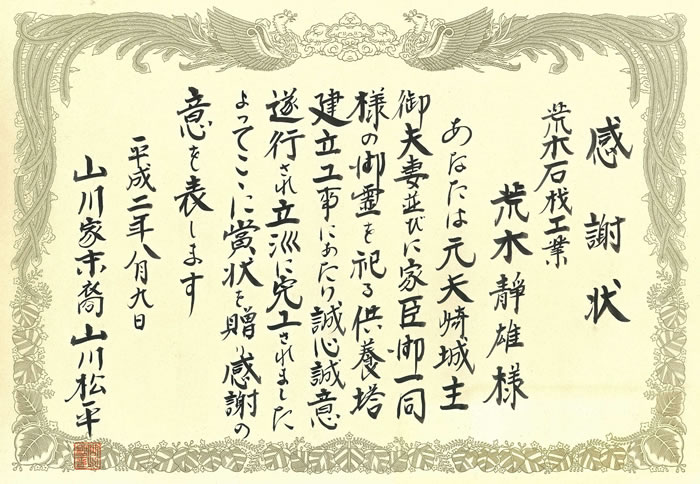 感謝状
荒木石材工業
荒木靜雄様
あなたは元天崎城主
御夫妻並びに家臣御一同
様の御霊を祀る供養塔
建立工事にあたり誠心誠意
遂行され立派に完工されました
よってここに賞状を贈り感謝の
意を表します
平成二年八月九日
山川家末裔 山川松平